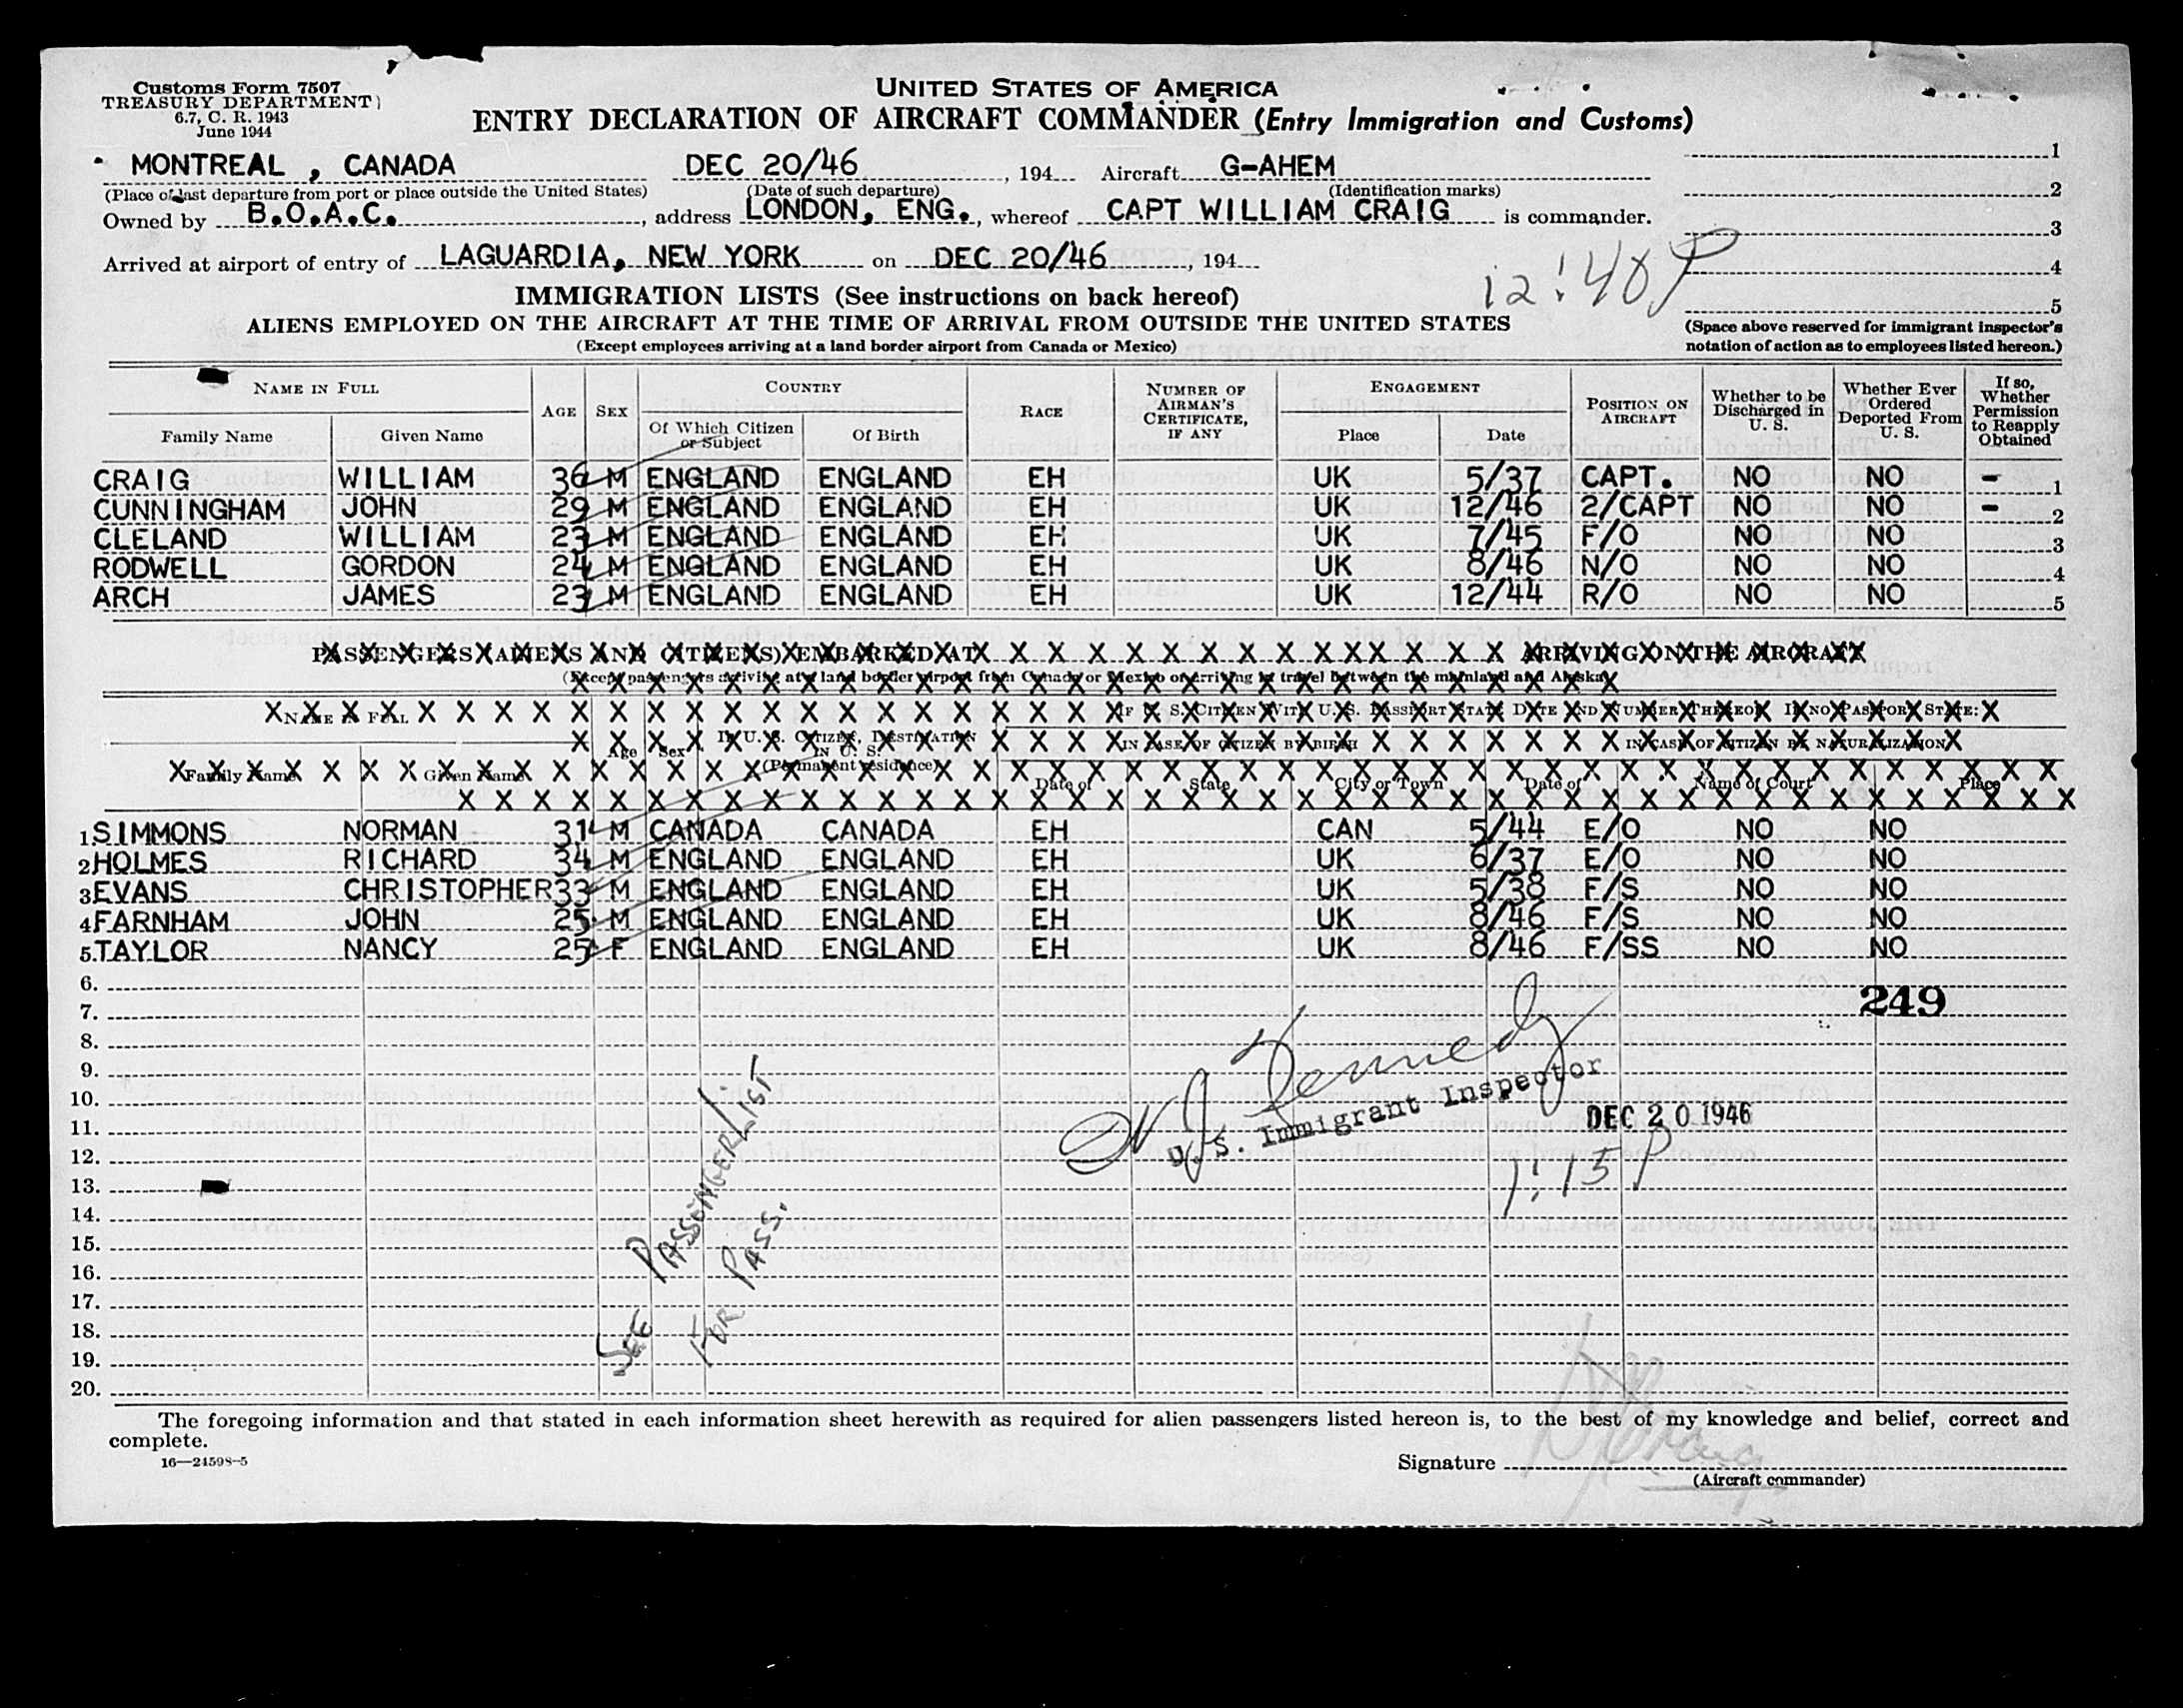 Customs Form 7507
TREASURY DEPARTMENT
6.7, C. R. 1943
June 1944
UNITED STATES OF AMERICA
ENTRY DECLARATION OF AIRCRAFT COMMANDER (Entry Immigration and Customs)
MONTREAL , CANADA DEC 20/46 , 194 Aircraft G-AHEM
(Place of last departure from port or place outside the United States) (Date of such departure) (Identification marks)
Owned by B.O.A.C. , address LONDON, ENG. , whereof CAPT WILLIAM CRAIG is commander.
Arrived at airport of entry of LAGUARDIA, NEW YORK on DEC 20/46 , 194
12:40 P
1
2
3
4
5
(Space above reserved for immigrant inspector's
notation of action as to employees listed hereon.)
IMMIGRATION LISTS (See instructions on back hereof)
ALIENS EMPLOYED ON THE AIRCRAFT AT THE TIME OF ARRIVAL FROM OUTSIDE THE UNITED STATES
(Except employees arriving at a land border airport from Canada or Mexico)
NAME IN FULL AGE SEX COUNTRY RACE NUMBER OF AIRMAN'S CERTIFICATE, IF ANY ENGAGEMENT POSITION ON AIRCRAFT Whether to be Discharged in U. S. Whether Ever Ordered Deported From U. S. If so, Whether Permission to Reapply Obtained
Family Name Given Name Of Which Citizen or Subject Of Birth Place Date
CRAIG WILLIAM 36 M ENGLAND ENGLAND EH UK 5/37 CAPT. NO NO - 1
CUNNINGHAM JOHN 29 M ENGLAND ENGLAND EH UK 12/46 2/CAPT NO NO - 2
CLELAND WILLIAM 23 M ENGLAND ENGLAND EH UK 7/45 F/O NO NO 3
RODWELL GORDON 24 M ENGLAND ENGLAND EH UK 8/46 N/O NO NO 4
ARCH JAMES 23 M ENGLAND ENGLAND EH UK 12/44 R/O NO NO 5
PASSENGERS (ALIENS AND CITIZENS) EMBARKED AT ARRIVING ON THE AIRCRAFT
(Except passengers arriving at a land border airport from Canada or Mexico or arriving by travel between the mainland and Alaska)
NAME IN FULL IF U. S. CITIZEN WITH U. S. PASSPORT STATE DATE AND NUMBER THEREOF. IF NO PASSPORT STATE:
Age Sex IF U. S. CITIZEN, DESTINATION IN U. S. IN CASE OF CITIZEN BY BIRTH IN CASE OF CITIZEN BY NATURALIZATION
Family Name Given Name (Permanent residence) Date of State City or Town Date of Name of Court Place
1 SIMMONS NORMAN 31 M CANADA CANADA EH CAN 5/44 E/O NO NO
2 HOLMES RICHARD 34 M ENGLAND ENGLAND EH UK 6/37 E/O NO NO
3 EVANS CHRISTOPHER 33 M ENGLAND ENGLAND EH UK 5/38 F/S NO NO
4 FARNHAM JOHN 25 M ENGLAND ENGLAND EH UK 8/46 F/S NO NO
5. TAYLOR NANCY 25 F ENGLAND ENGLAND EH UK 8/46 F/SS NO NO
6.
7. 249
8.
9.
10.
11.
12.
13.
14.
15.
16.
17.
18.
19.
20.
SEE PASSENGER LIST
FOR PASS.
Kennedy
U. S. Immigrant Inspector
DEC 20 1946
1:15 P
The foregoing information and that stated in each information sheet herewith as required for alien passengers listed hereon is, to the best of my knowledge and belief, correct and
complete.
16—24598-5
Signature W Craig
(Aircraft commander)